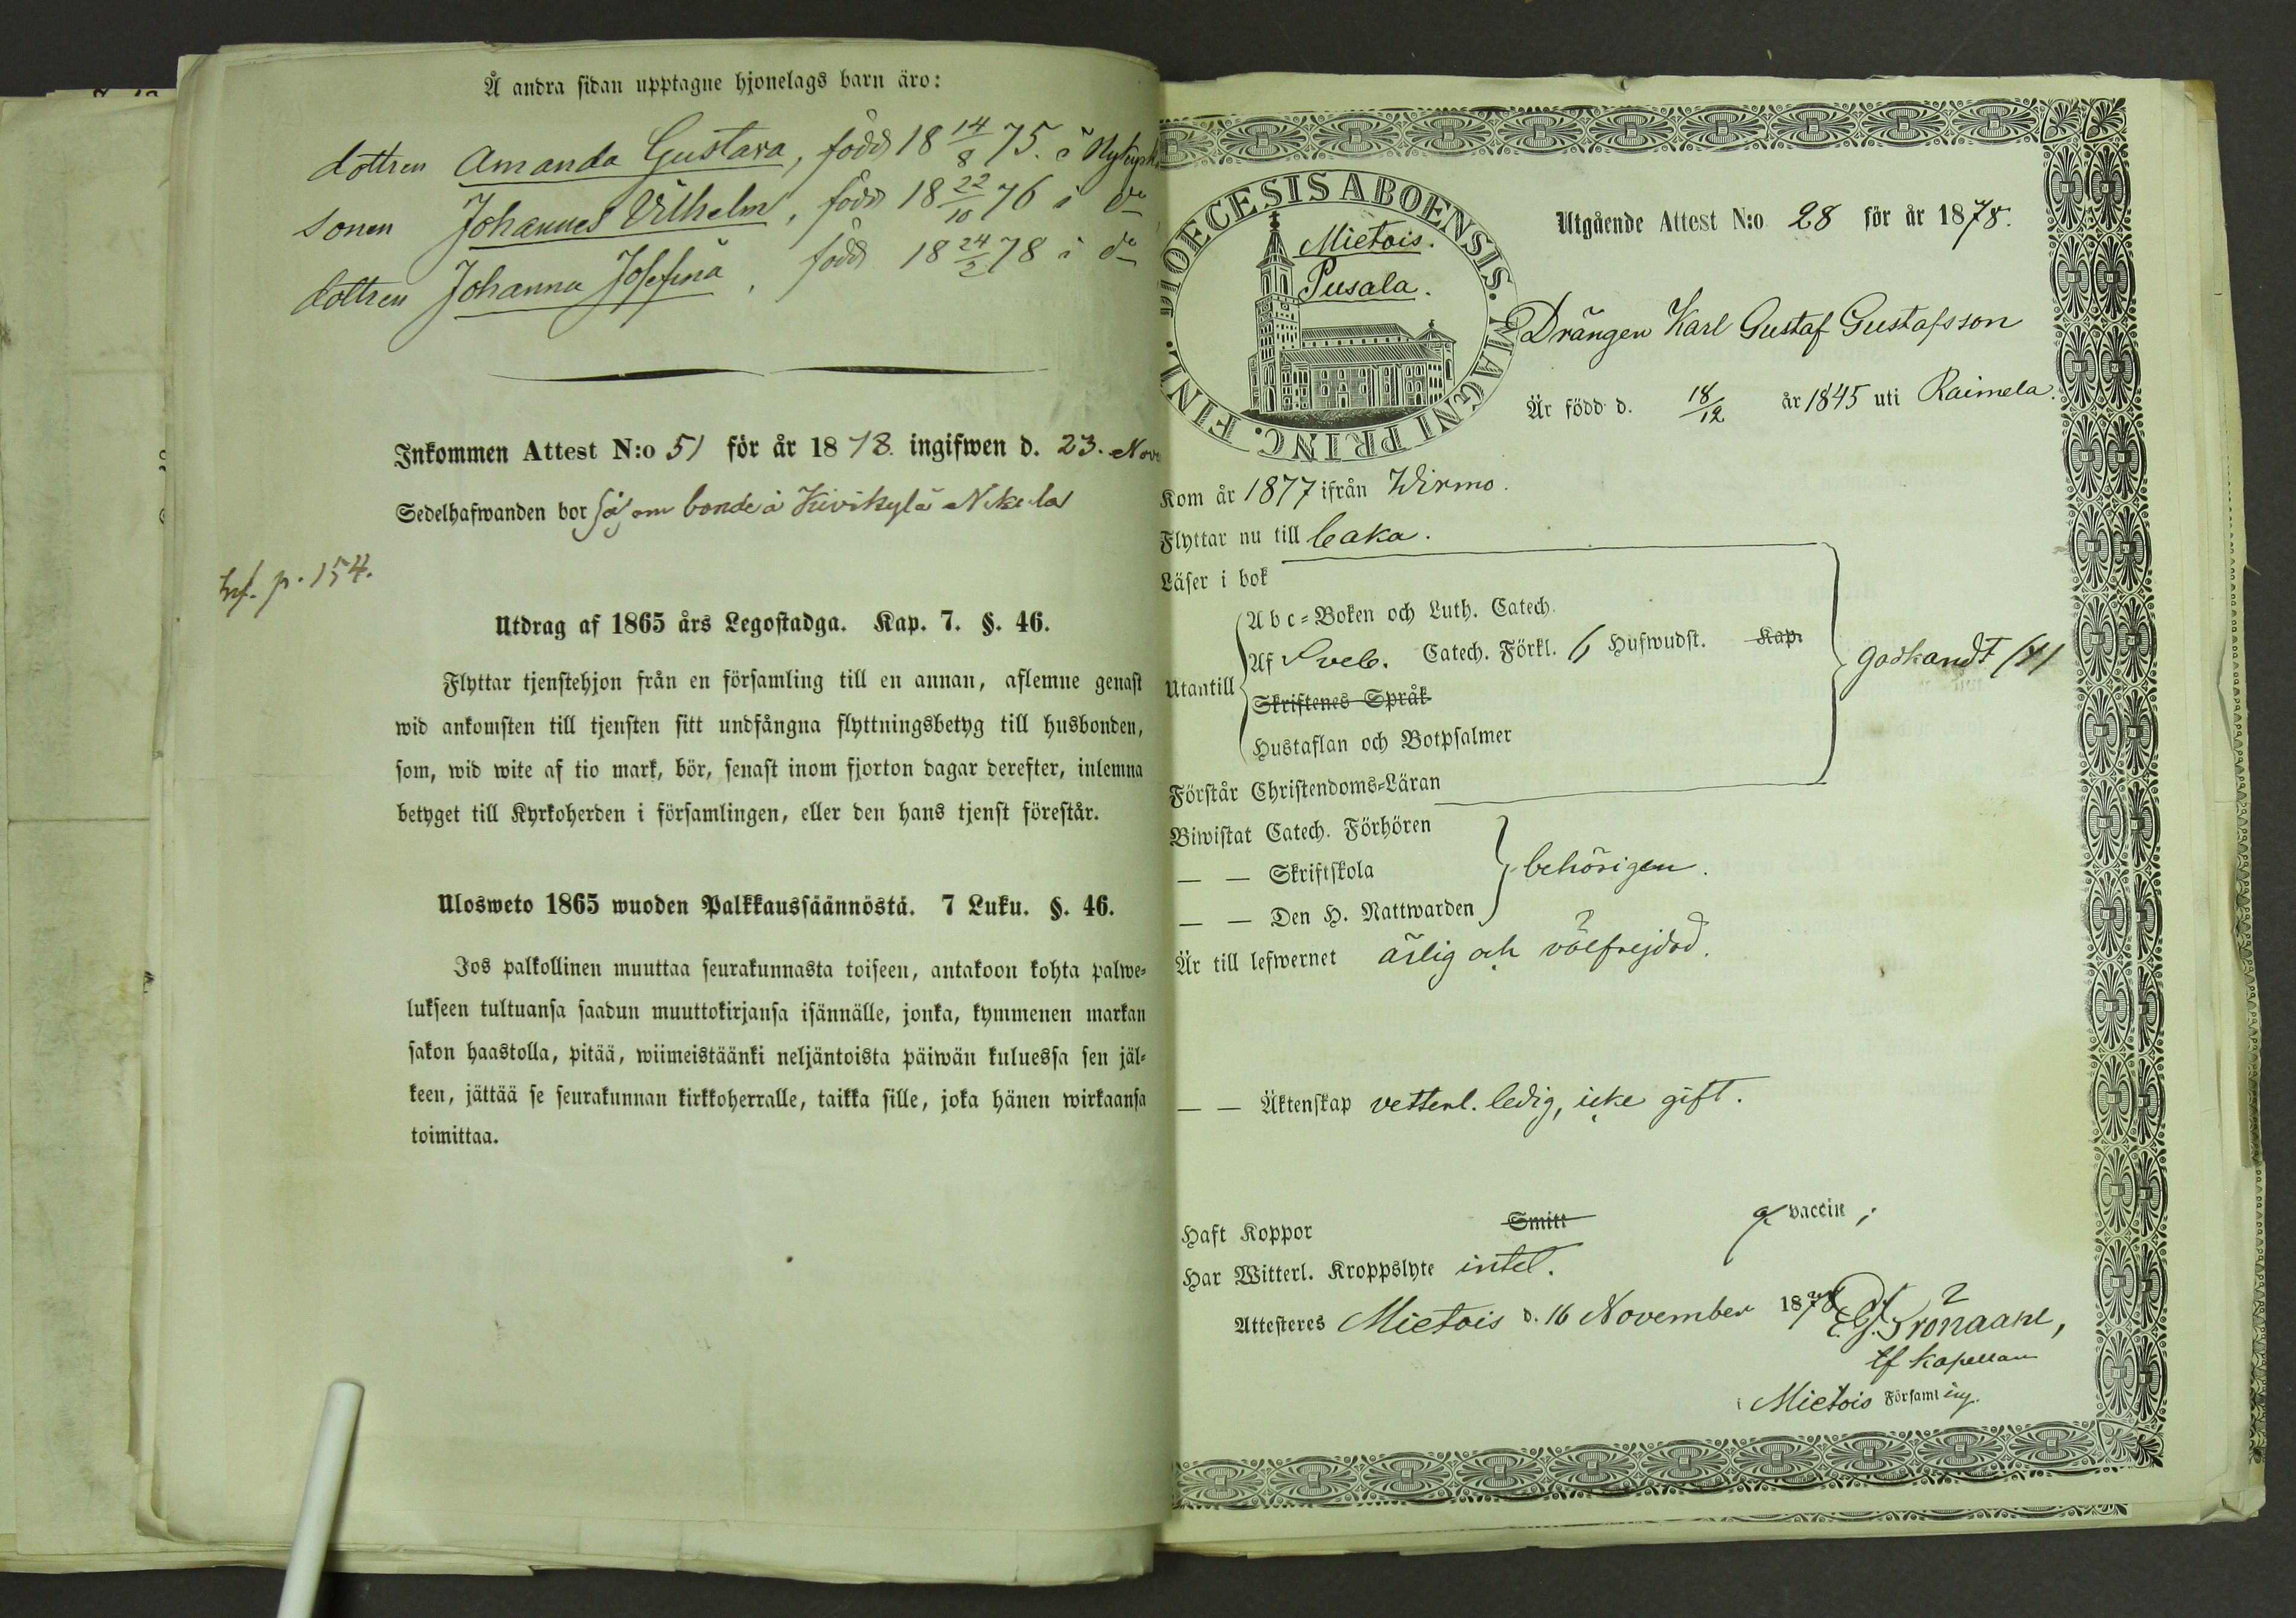 Å andra sidan upptagne hjonelags barn äro:
dottren Amanda Gustava, född 18 14/8 75. i Nykyrk
sonen Johannes Vilhelm, född 18 22/10 76 i do
dottren Johanna Josefina, född 18 24/2 78 i do
Inkommen Attest N:o 51 för år 1878. ingifwen d. 23. Nov
Sedelhafwanden bor såsom bonde å Kivikylä Nikula
hf. p. 154.
Utdrag af 1865 års Legostadga. Kap. 7. §. 46.
Flyttar tjenstehjon från en församling till en annan, aflemne genast
wid ankomsten till tjensten sitt undfångna flyttningsbetyg till husbonden,
som, wid wite af tio mark, bör, senast inom fjorton dagar derefter, inlemna
betyget till Kyrkoherden i församlingen, eller den hans tjenst förestår.
Ulosweto 1865 wuoden Palkkaussäännöstä. 7 Luku. §. 46.
Jos palkollinen muuttaa seurakunnasta toiseen, antakoon kohta palwe-
lukseen tultuansa saadun muuttokirjansa isännälle, jonka, kymmenen markan
sakon haastolla, pitää, wiimeistäänki neljäntoista päiwän kuluessa sen jäl-
keen, jättää se seurakunnan kirkkoherralle, taikka sille, joka hänen wirkaansa
toimittaa.
DIOECESIS ABOENSIS. MAGNI PRINC. FINL.
Mietois.
Pusala.
Utgående Attest N:o 28 för år 1878.
Drängen Karl Gustaf Gustafsson
Är född d. 18/12 år 1845 uti Raimela.
Kom år 1877 ifrån Wirmo.
Flyttar nu till Caka.
Läser i bok
Abc-Boken och Luth. Catech.
Utantill Af Sveb. Catech. Förkl. 6 Hufwudst. Kap. godkändt
Skriftenes Språk
Hustaflan och Botpsalmer
Förstår Christendoms-Läran
Biwistat Catech. Förhören
— — Skriftskola behörigen.
— — Den H. Nattwarden
Är till lefwernet ärlig och välfrejdad.
— — Äktenskap vetterl. ledig, icke gift.
Haft Koppor Smitt g. vaccin;
Har Witterl. Kroppslyte intet.
Attesteres Mietois d. 16 November 1878
tf kapellan
i Mietois Församling.